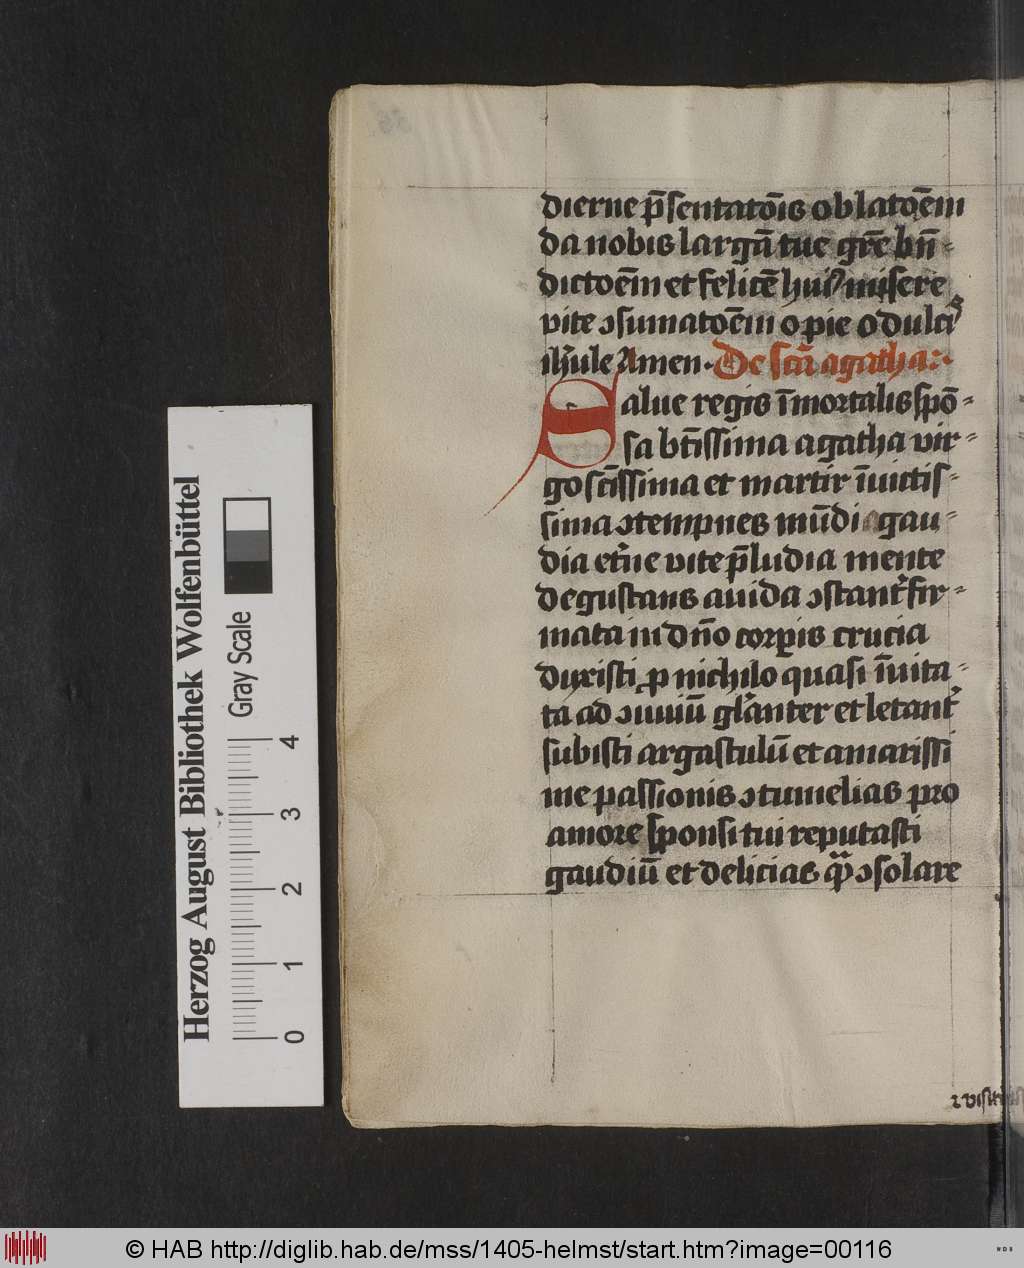 dierne p̄sentatōis oblatōem
da nobis largā tue gr̄e bn̄-
dictōem et felicē huiꝰ misere
vite ↄsumatōem o pie o dulcis
ih̄ule Amen. De sct̄a agatha:.
Salue regis īmortalis spō-
sa bt̄issima agatha vir-
go sct̄issima et martir īuictis-
sima ↄtempnes mūdi gau-
dia et̄ne vite p̄ludia mente
degustans auida ↄstant̄ fir-
mata in dn̄o corꝑis crucia
duxisti ꝓ nichilo quasi īuita-
ta ad ↄuiuiū gl̄anter et letant̄
subisti argastulū et amarissi
me passionis ↄtumelias pro
amore sponsi tui reputasti
gaudiū et delicias ꝙ̄ ↄsolare
Herzog August Bibliothek Wolfenbüttel
Gray Scale
0 1 2 3 4
© HAB http://diglib.hab.de/mss/1405-helmst/start.htm?image=00116